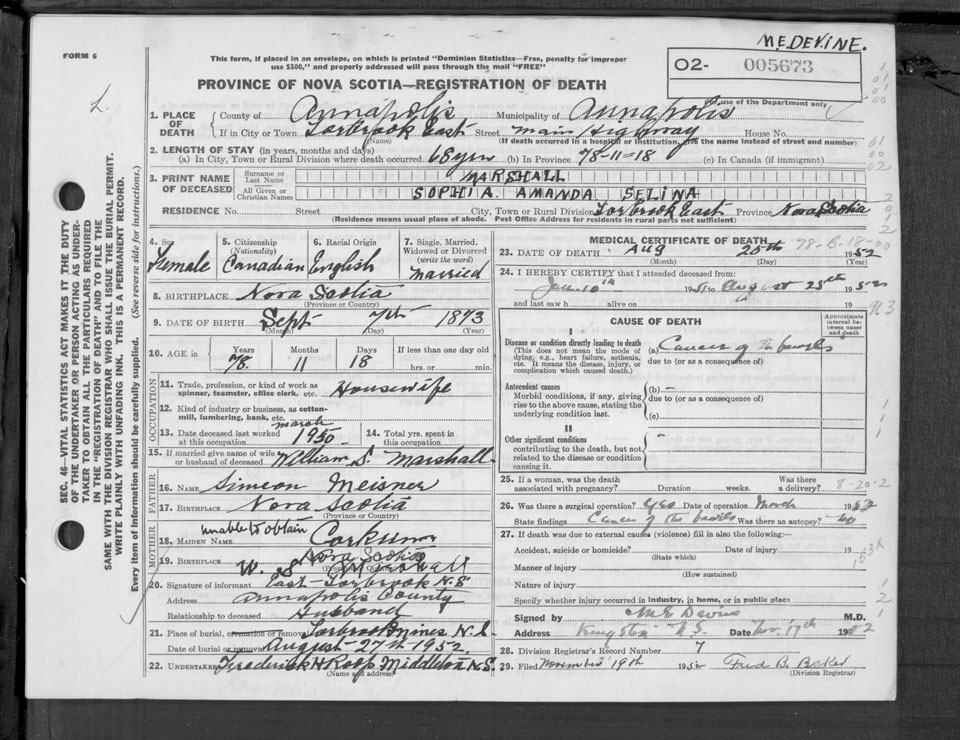 ME. DEVINE.
FORM 6
This form, if placed in an envelope, on which is printed "Dominion Statistics—Free, penalty for improper
use $300," and properly addressed will pass through the mail "FREE"
O2- 005673
PROVINCE OF NOVA SCOTIA—REGISTRATION OF DEATH
For use of the Department only
1. PLACE OF DEATH
County of Annapolis Municipality of Annapolis
If in City or Town Torbrook East Street Main Highway House No.
(Name) (If death occurred in a hospital or institution, give the name instead of street and number)
2. LENGTH OF STAY (in years, months and days)
(a) In City, Town or Rural Division where death occurred 68 yrs (b) In Province 78-11-18 (c) In Canada (if immigrant)
3. PRINT NAME OF DECEASED
Surname or Last Name MARSHALL
All Given or Christian Names SOPHIA. AMANDA SELINA
RESIDENCE No. Street City, Town or Rural Division Torbrook East Province Nova Scotia
(Residence means usual place of abode. Post Office Address for residents in rural parts not sufficient)
4. Sex Female
5. Citizenship (Nationality) Canadian
6. Racial Origin English
7. Single, Married, Widowed or Divorced (write the word) Married
8. BIRTHPLACE Nova Scotia
(Province or Country)
9. DATE OF BIRTH Sept 7th 1873
(Month) (Day) (Year)
10. AGE in Years 78 Months 11 Days 18 If less than one day old hrs. or min.
OCCUPATION
11. Trade, profession or kind of work as spinner, teamster, office clerk, etc. Housewife
12. Kind of industry or business, as cotton-mill, lumbering, bank, etc.
13. Date deceased last worked at this occupation March 1950
14. Total yrs. spent in this occupation
15. If married give name of wife or husband of deceased William S. Marshall
FATHER
16. NAME Simeon Meisner
17. BIRTHPLACE Nova Scotia
(Province or Country)
MOTHER
18. MAIDEN NAME unable to obtain Corkum
19. BIRTHPLACE Nova Scotia
(Province or Country)
20. Signature of informant W. S. Marshall
Address East Torbrook N.S.
Annapolis County
Relationship to deceased Husband
21. Place of burial, cremation or removal Torbrook mines N.S.
Date of burial or removal August 27th 1952.
22. UNDERTAKER Frederick H Roop Middleton N.S.
(Name and address)
MEDICAL CERTIFICATE OF DEATH
78-B-18-00
23. DATE OF DEATH Aug 25th 1952
(Month) (Day) (Year)
24. I HEREBY CERTIFY that I attended deceased from:
10th 1951 to August 25th 1952
and last saw h alive on 19
CAUSE OF DEATH
Approximate interval between onset and death
I
Disease or condition directly leading to death
(This does not mean the mode of dying, e.g., heart failure, asthenia, etc. It means the disease, injury, or complication which caused death.)
(a) Cancer of the bowels
due to (or as a consequence of)
Antecedent causes
Morbid conditions, if any, giving rise to the above cause, stating the underlying condition last.
(b) —
due to (or as a consequence of)
(c)
II
Other significant conditions contributing to the death, but not related to the disease or condition causing it.
25. If a woman, was the death associated with pregnancy? Duration weeks. Was there a delivery?
8-20-2
26. Was there a surgical operation? Yes Date of operation March 1952
State findings Cancer of the bowels Was there an autopsy? No
27. If death was due to external causes (violence) fill in also the following:—
Accident, suicide or homicide? Date of injury 19
(State which)
Manner of injury
(How sustained)
Nature of injury
Specify whether injury occurred in industry, in home, or in public place
Signed by M.E. Devine M.D.
Address Kingston N.S. Date Nov. 17th 1952
28. Division Registrar's Record Number 7
29. Filed November 19th 1952 Fred B.
(Division Registrar)
SEC. 46—VITAL STATISTICS ACT MAKES IT THE DUTY
OF THE UNDERTAKER OR PERSON ACTING AS UNDER-
TAKER TO OBTAIN ALL THE PARTICULARS REQUIRED
IN THE "REGISTRATION OF DEATH" AND TO FILE THE
SAME WITH THE DIVISION REGISTRAR WHO SHALL ISSUE THE BURIAL PERMIT.
WRITE PLAINLY WITH UNFADING INK. THIS IS A PERMANENT RECORD.
Every item of Information should be carefully supplied. (See reverse side for instructions.)